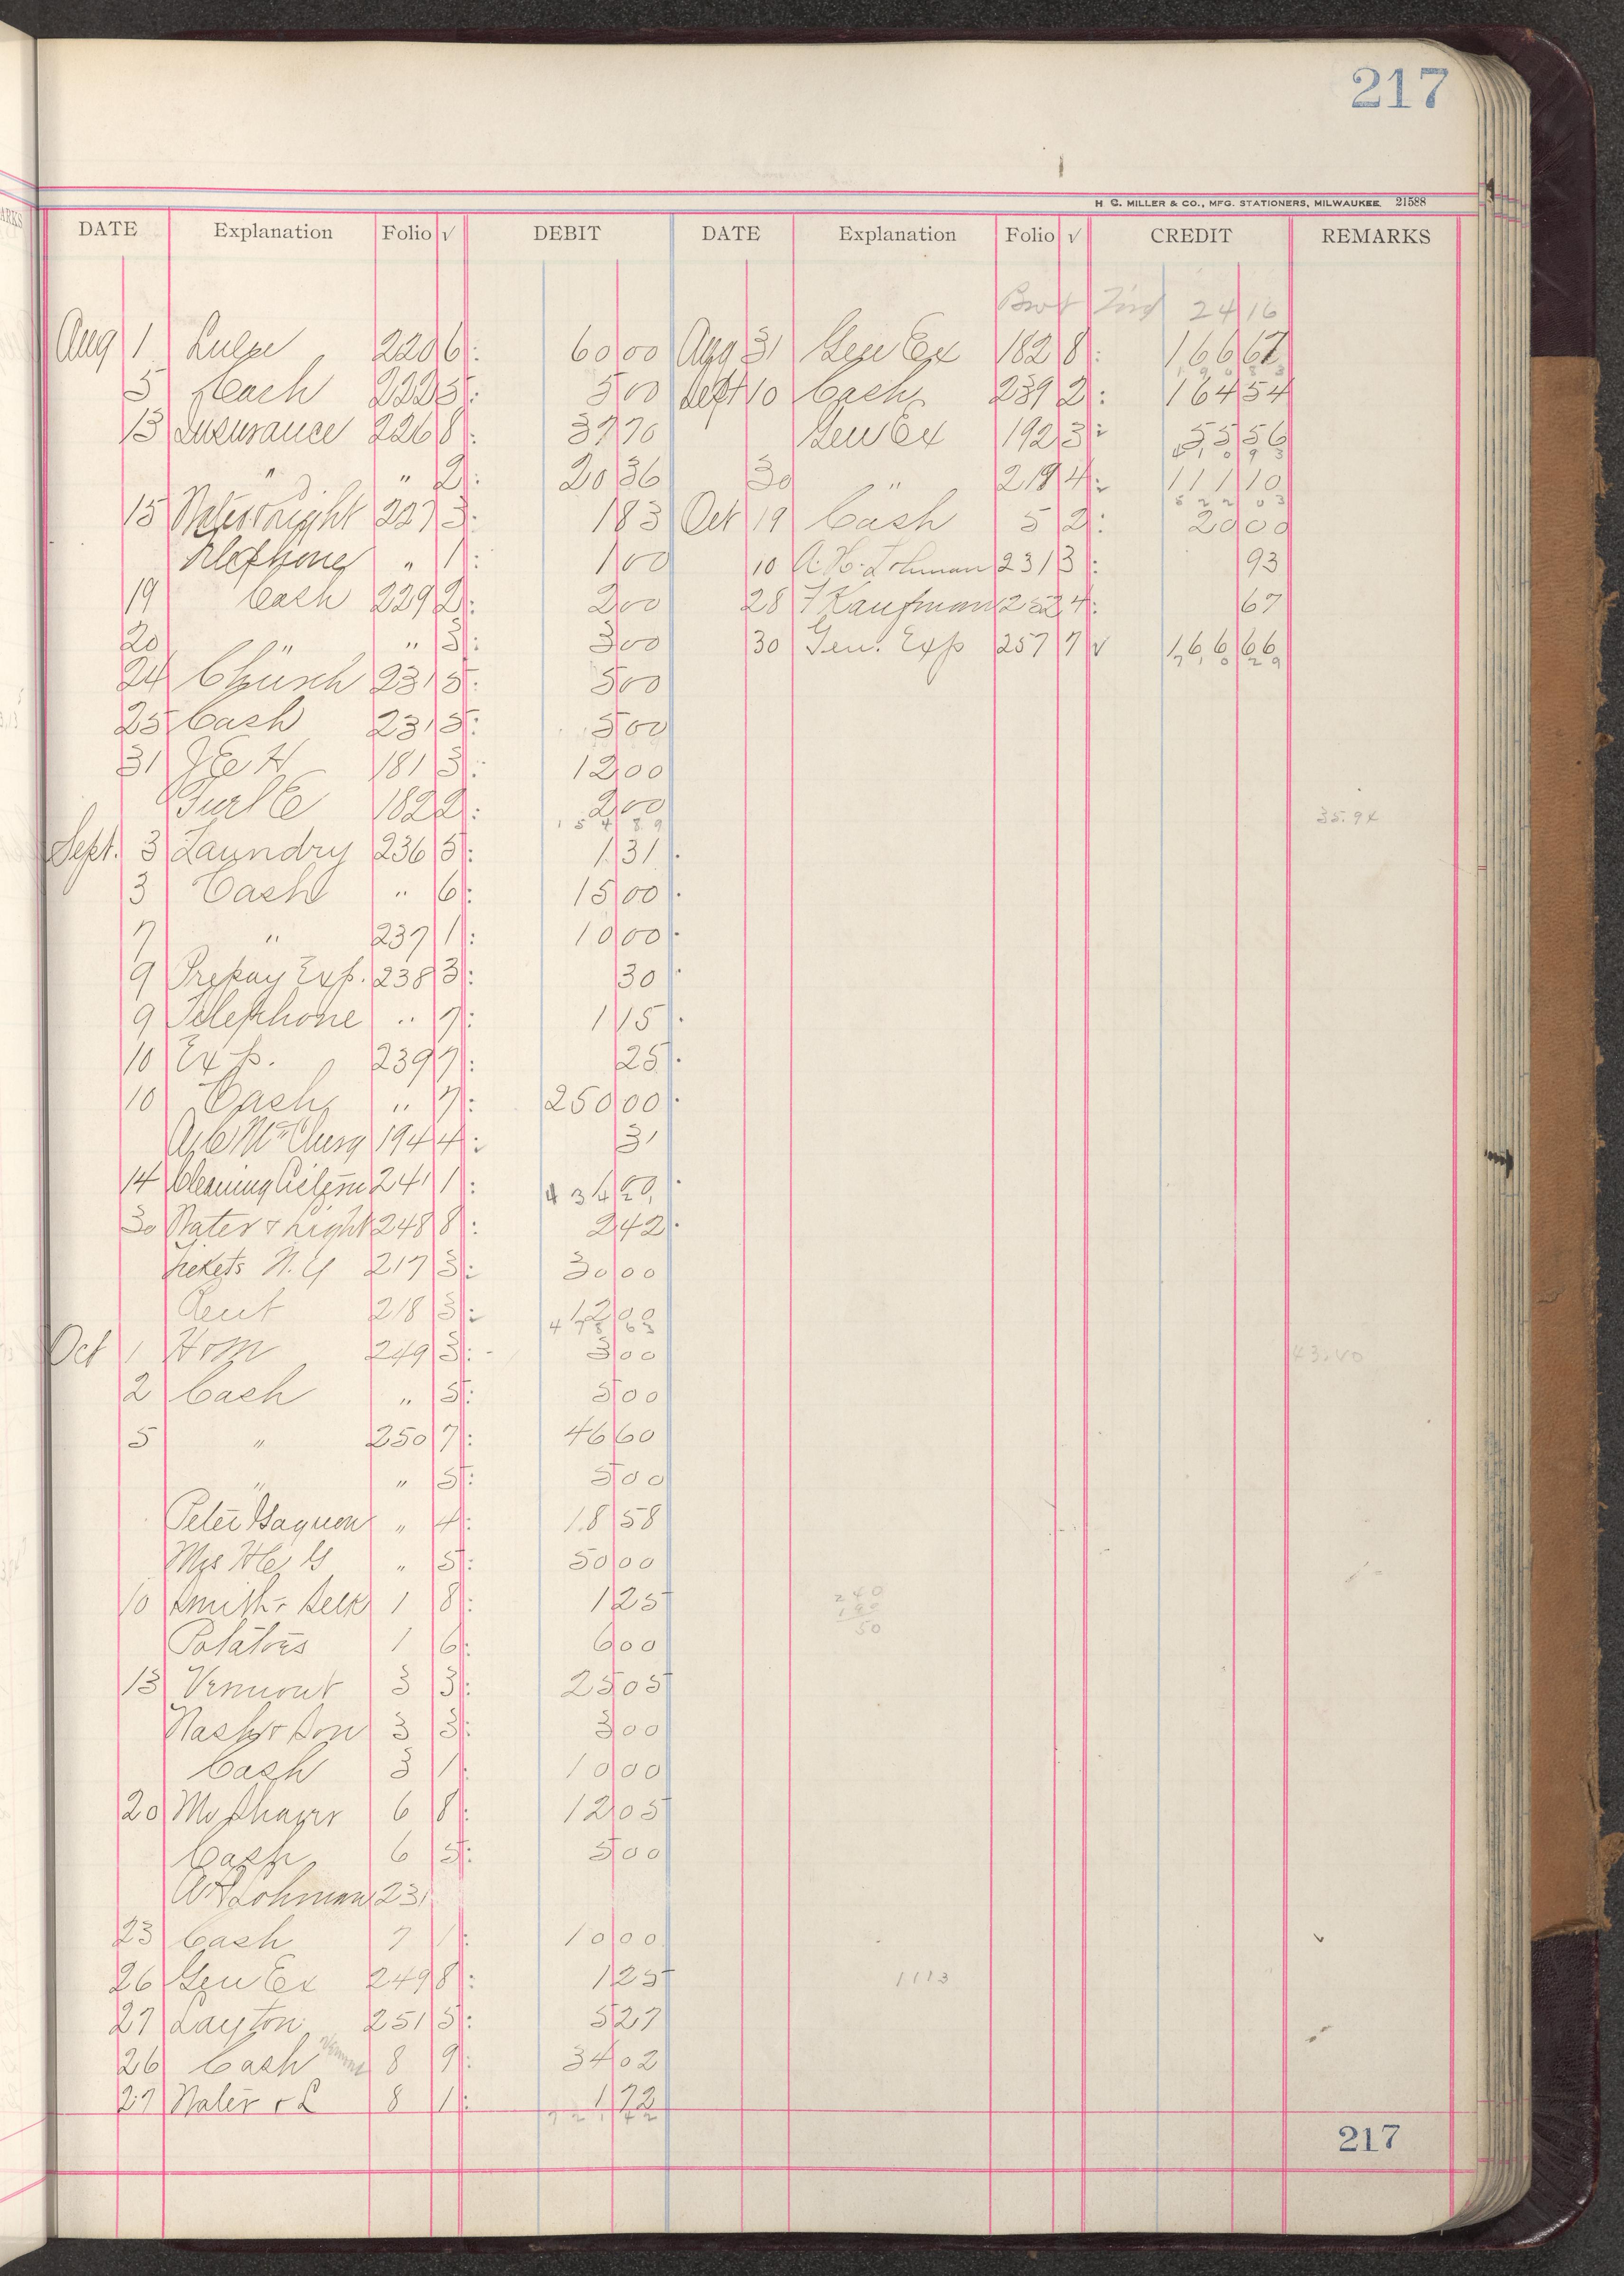 217
H. C. MILLER & CO., MFG. STATIONERS, MILWAUKEE 21588
DATE Explanation Folio √ DEBIT DATE Explanation Folio √ CREDIT REMARKS
24 16
Aug 1 220 6 60 00 Aug 31 Gen Ex 182 8 166 67
5 Cash 222 5 5 00 Sept 10 Cash 239 2 164 54
13 Insurance 226 8 37 70 Gen Ex 192 3 55 56
" " 2 20 36 30 " 219 4 111 10
15 Water & Light 227 3 1 83 Oct 19 Cash 5 2 20 00
Telephone " 1 1 00 10 A. H. Lohman 231 3 93
19 Cash 229 2 2 00 28 F Kaufman 252 4 67
20 " " 3 3 00 30 Gen. Exp 257 7 √ 166 66
24 Church 231 5 5 00
25 Cash 231 5 5 00
31 181 3 12 00
182 2 2 00
154 89
35.94
Sept. 3 Laundry 236 5 1 31
3 Cash " 6 15 00
7 " 237 1 10 00
9 Prepay Exp. 238 3 30
9 Telephone " 7 1 15
10 Exp. 239 7 25
10 Cash " 7 250 00
McClurg 194 4 31
14 Cleaning Cistern 241 1
30 Water & Light 248 8 2 42
Tickets N.Y 217 3 30 00
Rent 218 3 12 00
Oct 1 249 3 3 00
43.40
2 Cash " 5 5 00
5 " 250 7 46 60
" " 5 5 00
Peter " 4 18 58
" 5 50 00
10 Smith 1 8 1 25
240
190
50
Potatoes 1 6 6 00
13 Vermont 3 3 25 05
Nash & Son 3 3 3 00
Cash 3 1 10 00
20 6 8 12 05
Cash 6 5 5 00
A H Lohman 231
23 Cash 7 1 10 00
26 Gen Ex 249 8 1 25
1113
27 Layton 251 5 5 27
26 Cash 8 9 34 02
27 Water & L 8 1 1 72
217